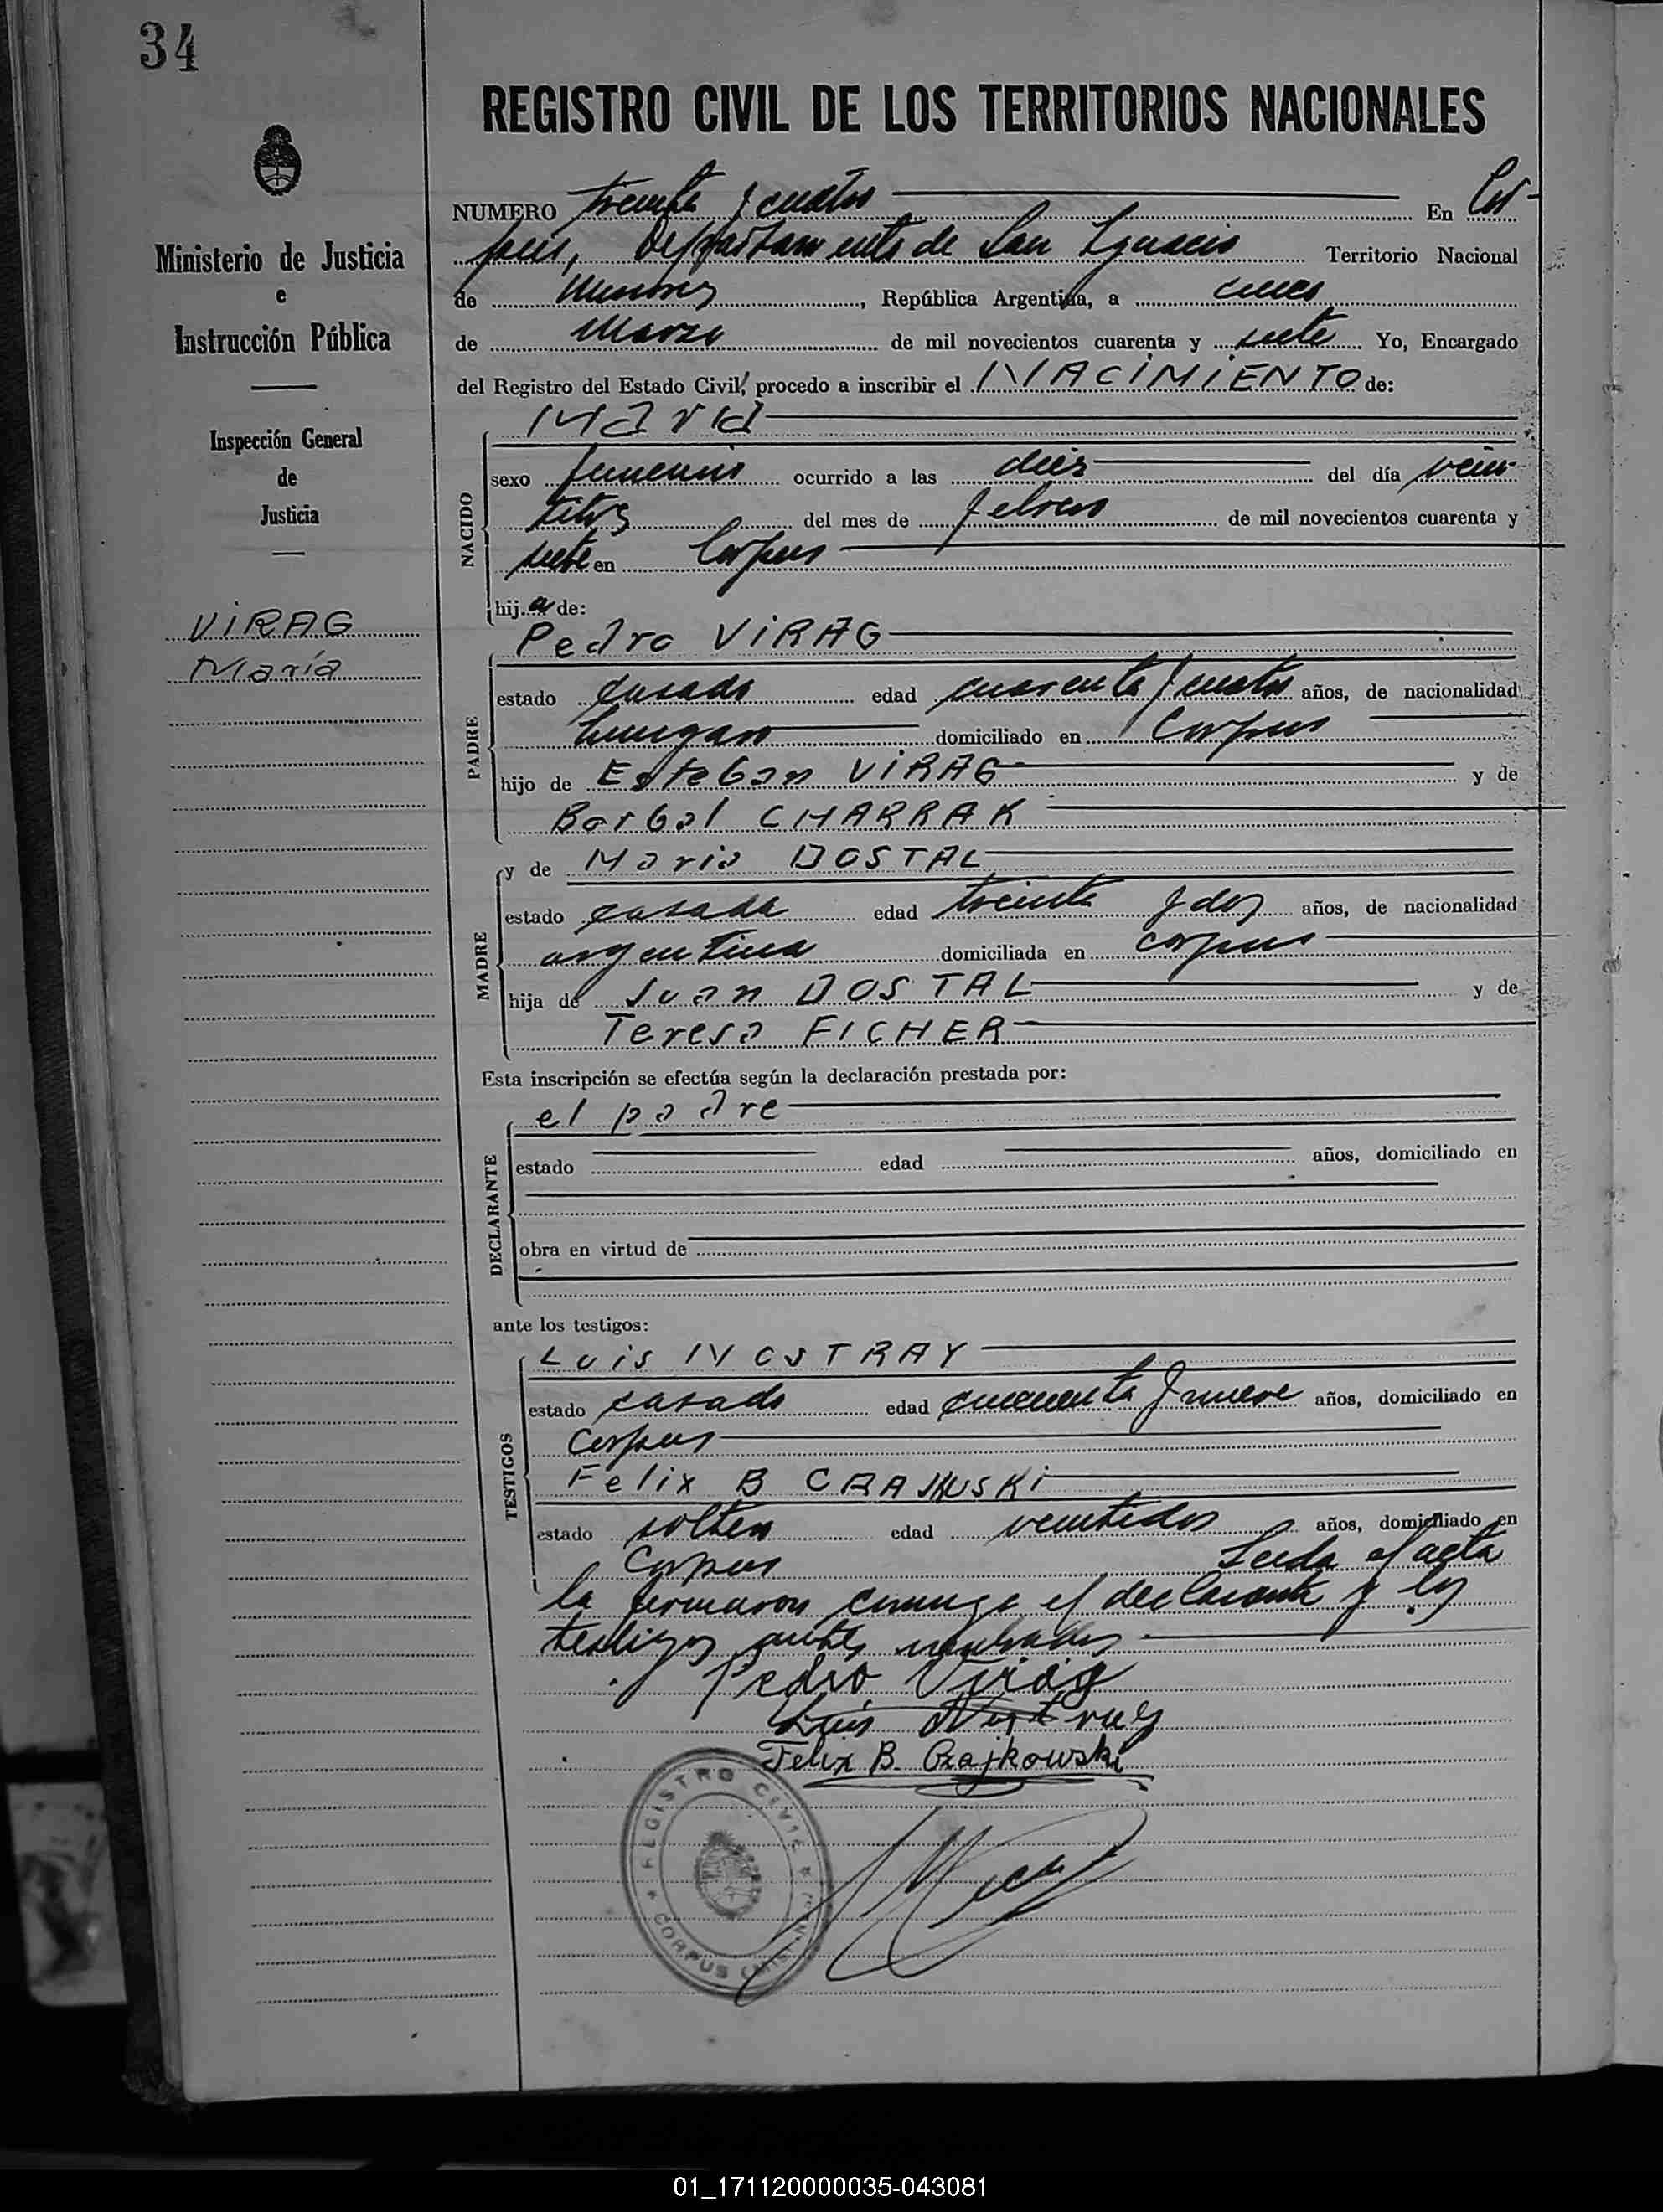 34
REGISTRO CIVIL DE LOS TERRITORIOS NACIONALES
Ministerio de Justicia
e
Instrucción Pública
Inspección General
de
Justicia
VIRAG
María
NUMERO treinta y cuatro En Cor-
pus, Departamento de San Ignacio Territorio Nacional
de Misiones, República Argentina, a cinco
de Marzo de mil novecientos cuarenta y siete Yo, Encargado
del Registro del Estado Civil, procedo a inscribir el NACIMIENTO de:
María
NACIDO
sexo femenino ocurrido a las diez del día vein-
titrs del mes de febrero de mil novecientos cuarenta y
siete en Corpus
hija de:
Pedro VIRAG
PADRE
estado casado edad cuarenta y cuatro años, de nacionalidad
hungaro domiciliado en Corpus
hijo de Esteban VIRAG y de
Borbal CHARRAK
y de Maria DOSTAL
MADRE
estado casada edad treinta y dos años, de nacionalidad
argentina domiciliada en Corpus
hija de Juan DOSTAL y de
Teresa FICHER
Esta inscripción se efectúa según la declaración prestada por:
el padre
DECLARANTE
estado edad años, domiciliado en
obra en virtud de
ante los testigos:
Luis NOSTRAY
TESTIGOS
estado casado edad cincuenta y nueve años, domiciliado en
Corpus
Felix B CRAJKUSKI
estado soltero edad veintidos años, domiciliado en
Corpus Leida el acta
la firmaron conmigo el declarante y los
testigos antes nombrados
Pedro Virág
Luis Nostray
Felix B. Czajkowski
REGISTRO CIVIL
CORPUS
01_171120000035-043081